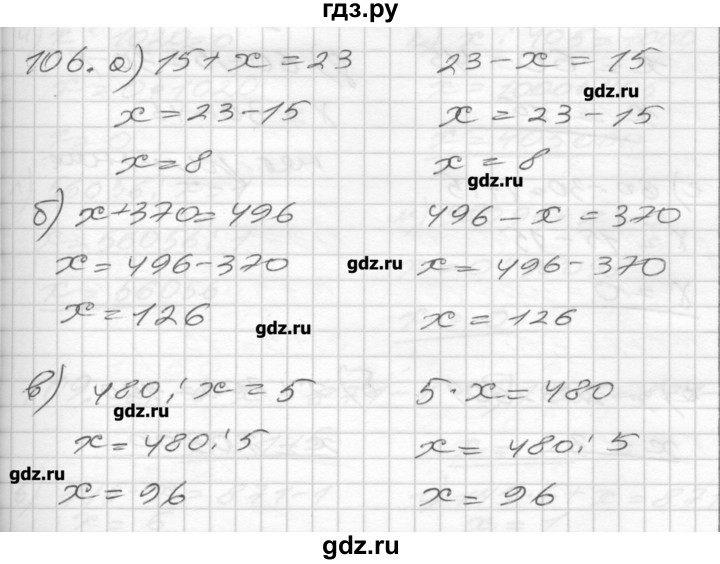 гдз.ру
106. а) 15 + x = 23 23 - x = 15
gdz.ru
x = 23 - 15 x = 23 - 15
x = 8 x = 8
gdz.ru
б) x + 370 = 496 496 - x = 370
x = 496 - 370 gdz.ru x = 496 - 370
x = 126 gdz.ru x = 126
в) 480 : x = 5 5 · x = 480
gdz.ru
x = 480 : 5 x = 480 : 5
gdz.ru
x = 96 x = 96
gdz.ru